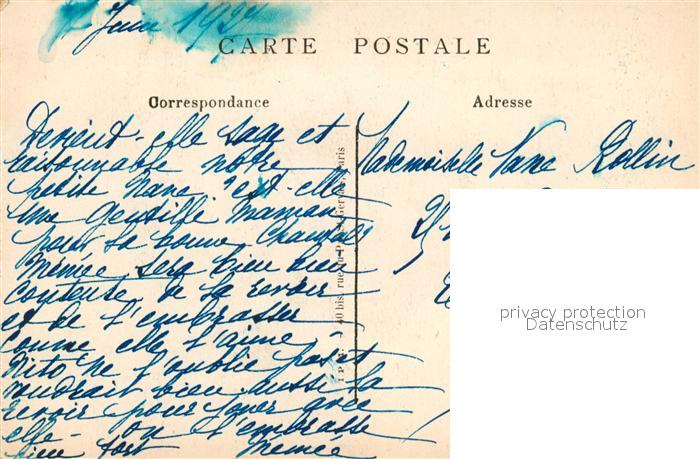 Juin 192
CARTE POSTALE
Correspondance
Adresse
Devient-elle sage et
raisonnable notre
petite Nane ? est-elle
une gentille maman
pour sa bonne
Mémée sera bien bien
contente de la revoir
et de l'embrasser
comme elle l'aime -
Rito ne l'oublie pas et
voudrait bien aussi la
revoir pour jouer avec
elle - on l'embrasse
bien fort Mémée
Mademoiselle Nane Rollin
40 bis, rue du
Paris
privacy protection
Datenschutz